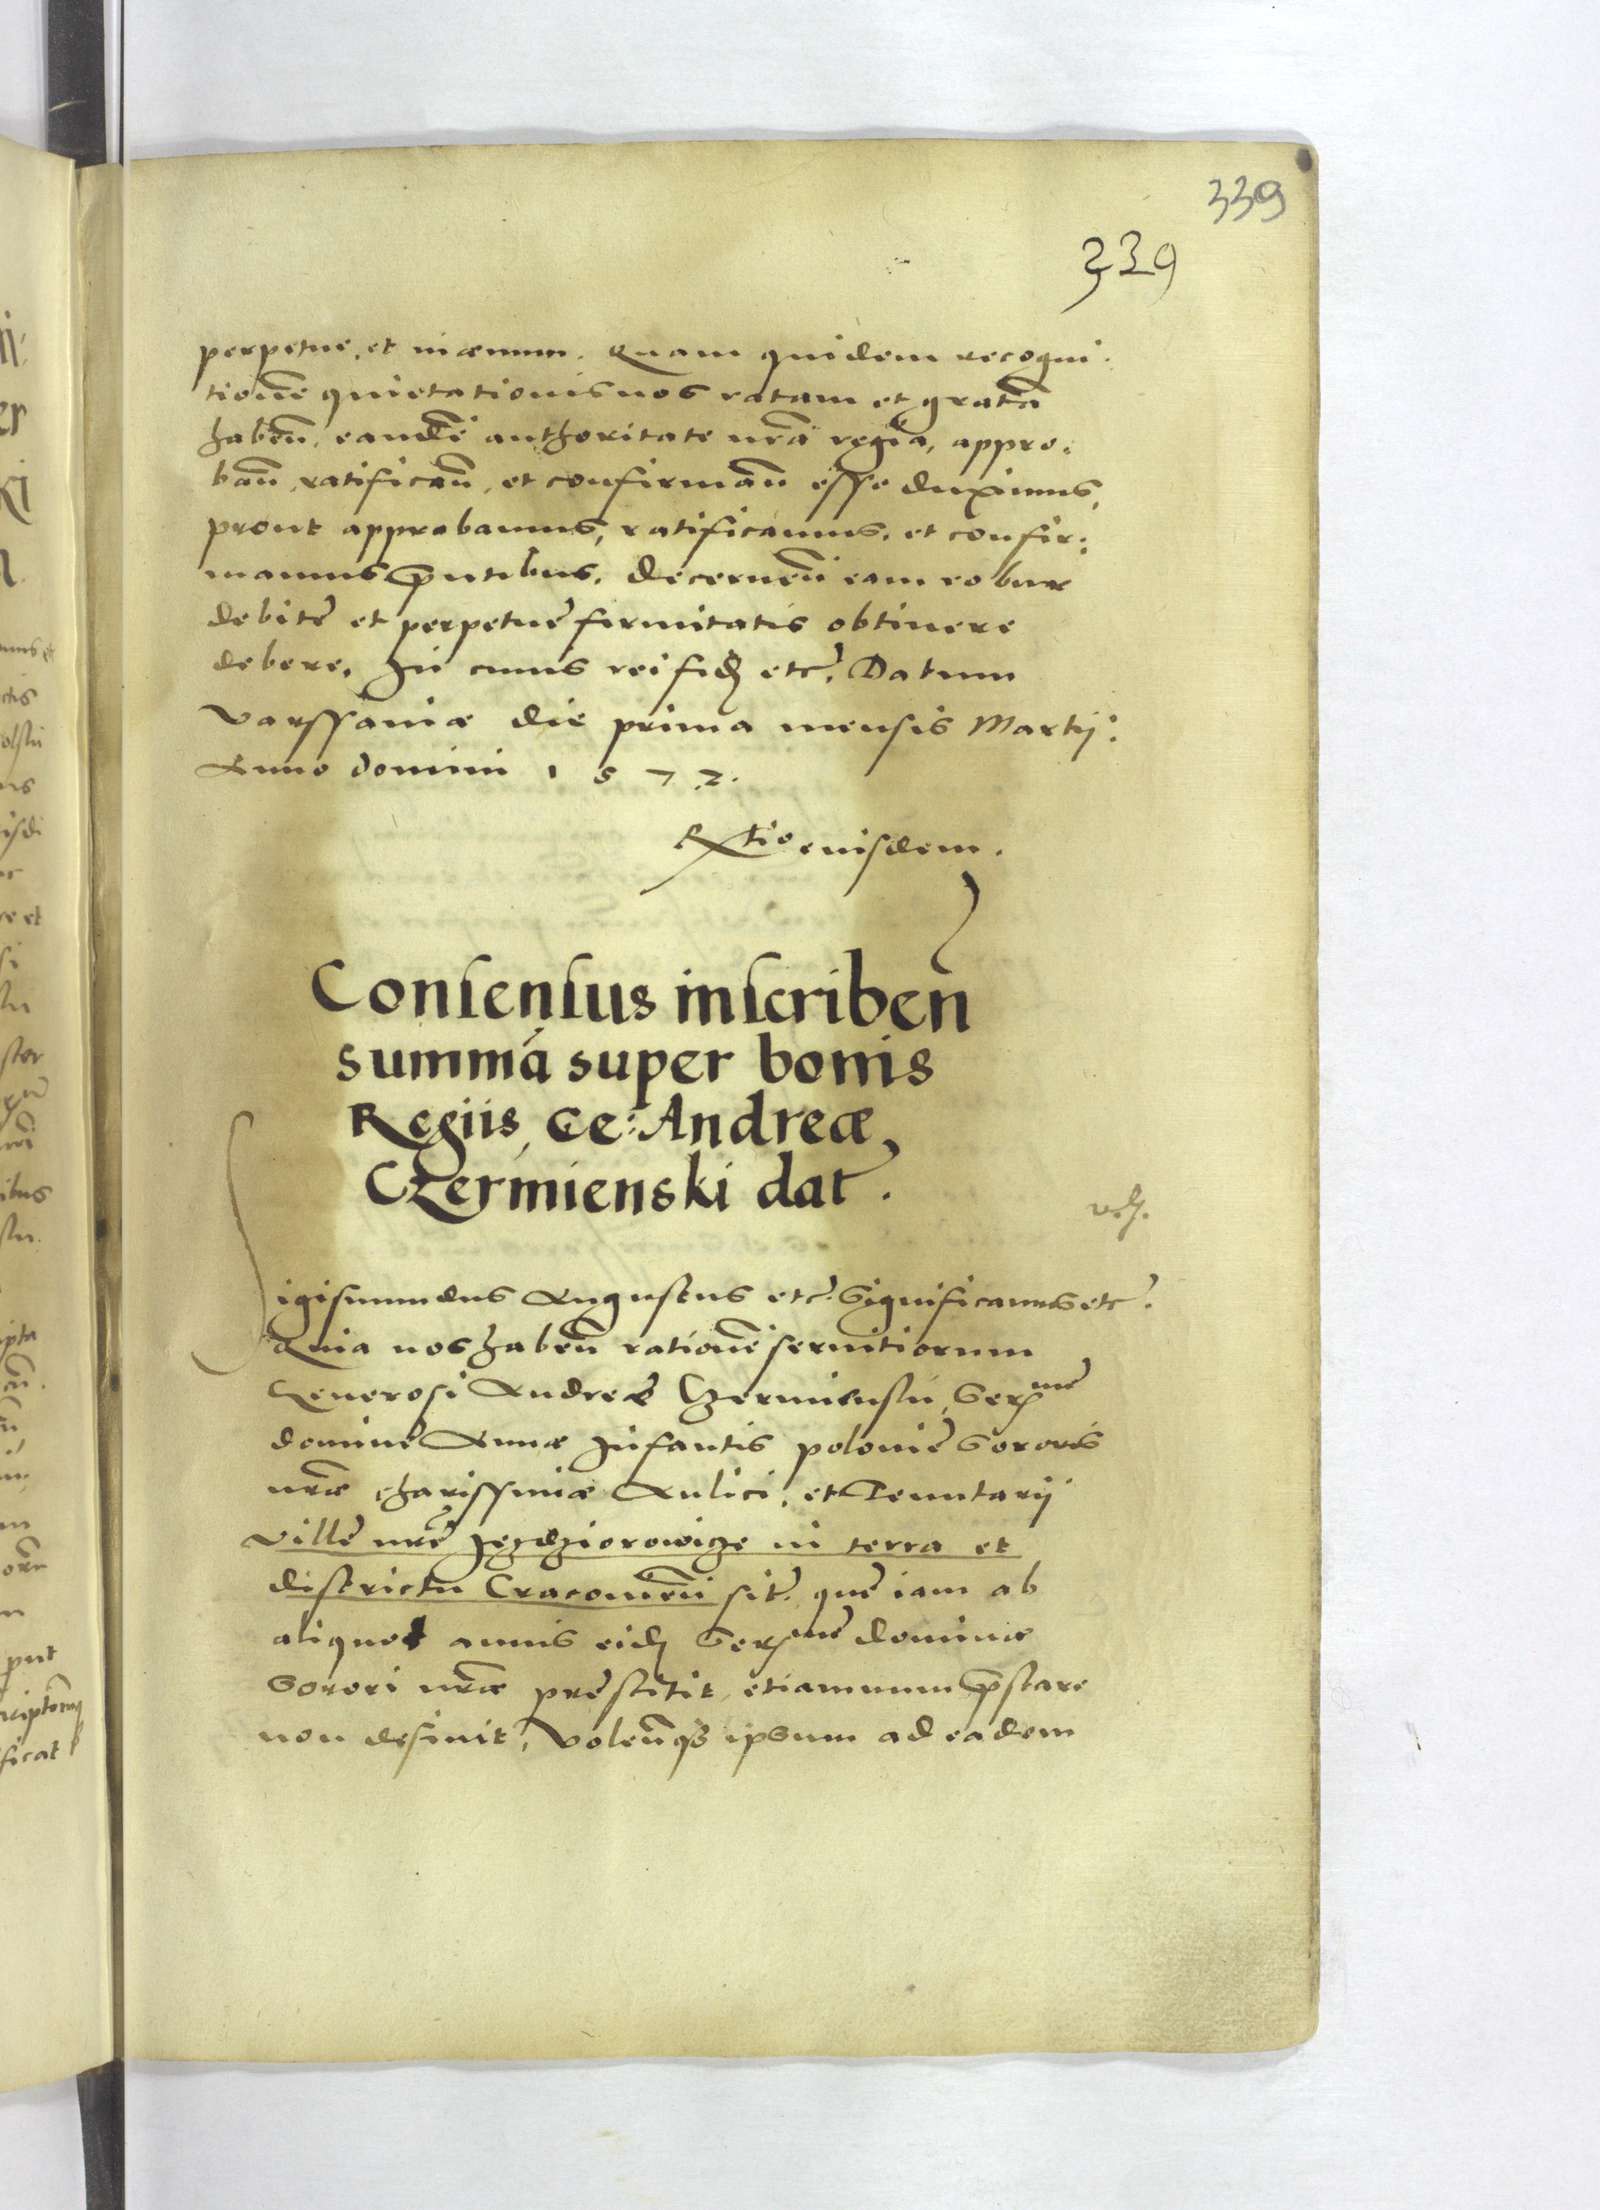 339
339
perpetue, et inævum. Quam quidem recogni:
tionē quietationis nos ratam et gratā
haben̄, eandē authoritate nr̄a regia, appro:
ban̄, ratifican̄, et confirman̄ esse duximus,
prout approbamus, ratificamus, et confir:
mamus p̄ntibus, decernen̄ eam robur
debitę et perpetuę firmitatis obtinere
debere. In cuius rei fid etc. Datum
Varssaviæ die prima mensis Martij:
Anno domini 1572.
Rtio eiusdem.
Consensus inscriben̄
summā super bonis
Regiis, Ge: Andreæ
Czermienski dat.
Sigismundus Augustus etc. Significamus etc.
Quia nos haben̄ rationē servitiorum
Generosi Andreę Czermienski, Serme
dominę Annæ Infantis polonię Sororis
nr̄æ charissimæ Aulici, et Tenutarij
villę nr̄ę in terra et
districtu Cracovien̄ sit. quę iam ab
aliquot annis eid Serme dominæ
Sorori nr̄æ pręstitit, etiamnum p̄stare
non desinit, Volen̄q3 ipsum ad eadem